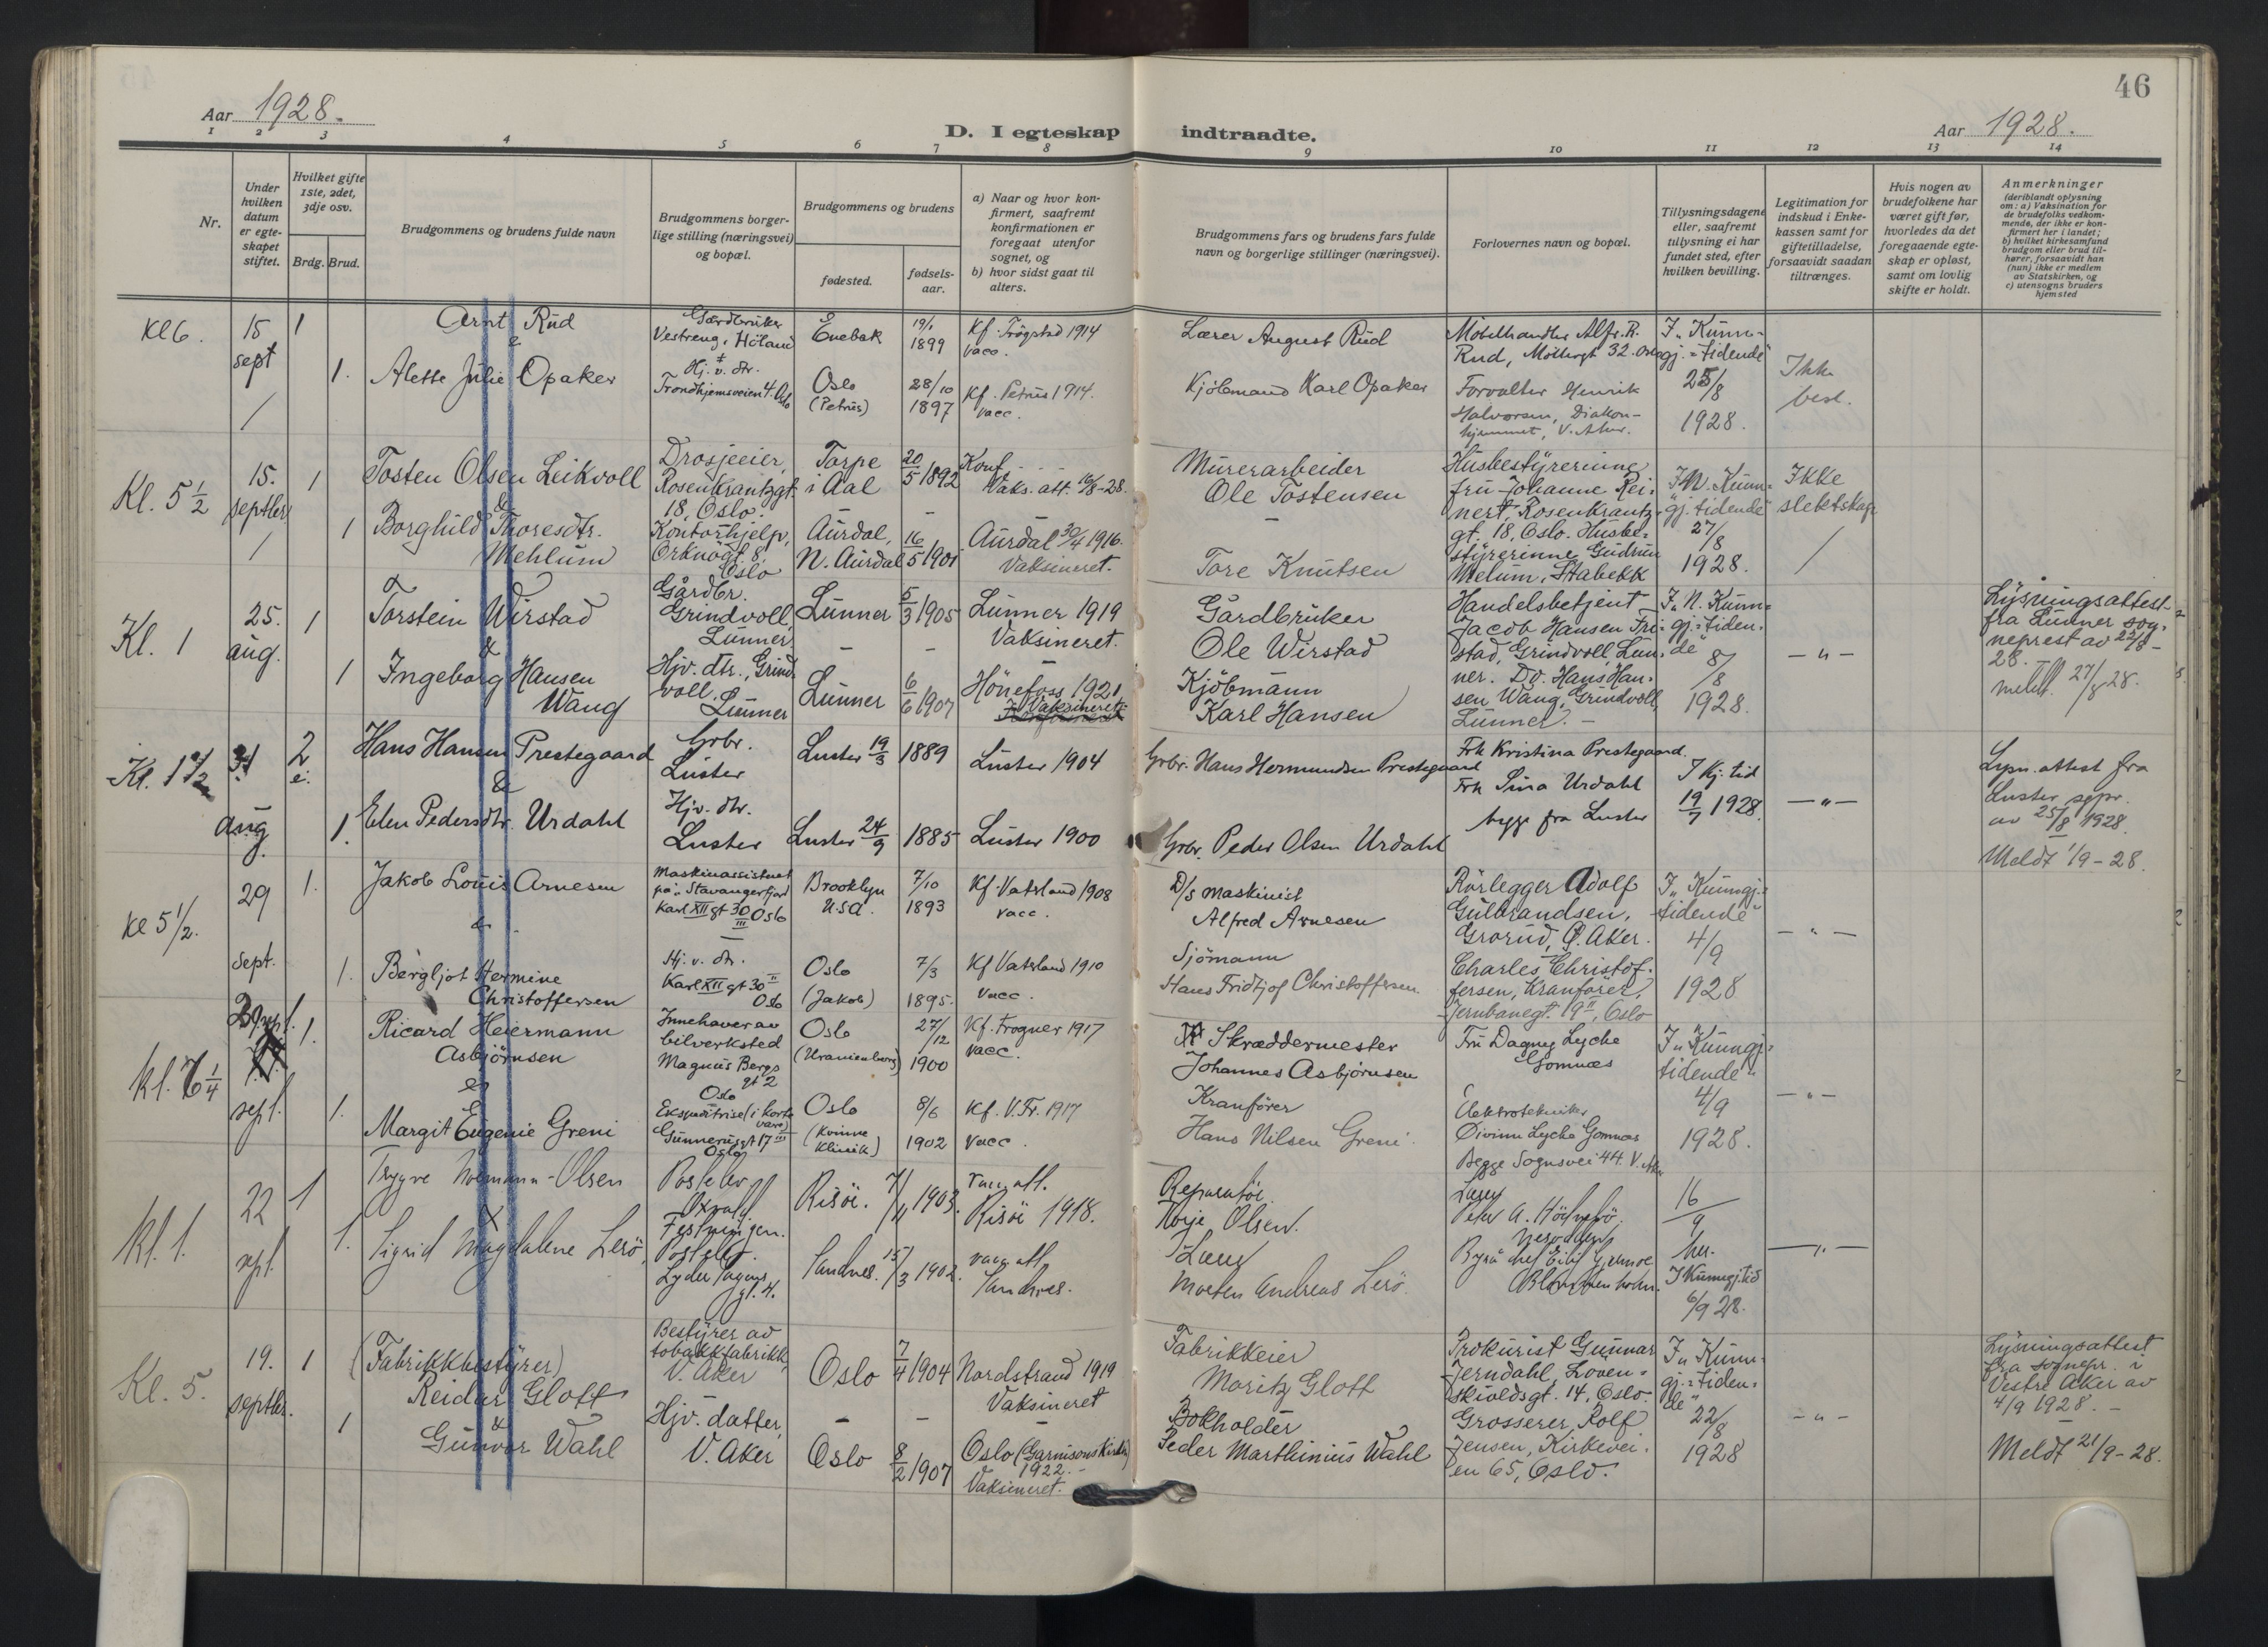 46
Aar 1928.
D. I egteskap indtraadte.
Aar 1928.
1 2 3 4 5 6 7 8 9 10 11 12 13 14
Nr.
Under hvilken datum er egteskapet stiftet.
Hvilket gifte 1ste, 2det, 3dje osv.
Brdg. Brud.
Brudgommens og brudens fulde navn
Brudgommens borgerlige stilling (næringsvei) og bopæl.
Brudgommens og brudens
fødested.
fødselsaar.
a) Naar og hvor konfirmert, saafremt konfirmationen er foregaat utenfor sognet, og
b) hvor sidst gaat til alters.
Brudgommens fars og brudens fars fulde navn og borgerlige stillinger (næringsvei).
Forlovernes navn og bopæl.
Tillysningsdagene eller, saafremt tillysning ei har fundet sted, efter hvilken bevilling.
Legitimation for indskud i Enkekassen samt for giftetilladelse, forsaavidt saadan tiltrænges.
Hvis nogen av brudefolkene har været gift før, hvorledes da det foregaaende egteskap er opløst, samt om lovlig skifte er holdt.
Anmerkninger
(deriblandt oplysning om: a) Vaksination for de brudefolks vedkommende, der ikke er konfirmert her i landet;
b) hvilket kirkesamfund brudgom eller brud tilhører, forsaavidt han (hun) ikke er medlem av Statskirken, og
c) utensogns bruders hjemsted
Kl 6.
15 sept
1
Arnt Rud
&
Gårdbruker
Vestreng, Höland
Enebak
19/1 1899
Kf. Trögstad 1914
vacc.
Lærer August Rud
Möbelhandler Alfr. R.
Rud, Möllergt 32. Oslo
I „Kunn-
gj.=tidende"
25/8
1928.
Ikke
besl.
1.
Alette Julie Opaker
Hj. v. dtr.
Trondhjemsveien 4. Oslo
Oslo
(Petrus)
28/10 1897
Kf. Petrus 1914.
vacc.
Kjöbmand Karl Opaker
Forvalter Henrik
Halvorsen, Diakon-
hjemmet, V. Aker.
Kl. 5 1/2
15. septbr
1
Tosten Olsen Leikvoll
&
Drosjeeier,
Rosenkrantzgt.
18, Oslo.
Torpe
i Aal
20/5 1892
Konf.
Vaks. att. 16/8-28.
Murerarbeider
Ole Tostensen
Husbestyrerinne
fru Johanne Rei=
nert, Rosenkrantz=
gt. 18, Oslo. Husbe=
styrerinne Gudrun
Melum, Stabekk
I N. Kunn=
gj. tidende"
27/8
1928.
Ikke
slektskap
1
Borghild Thoresdtr.
Mehlum
Kontorhjelp,
Orknögt 8,
Oslo
Aurdal,
N. Aurdal
16/5 1901
Aurdal 30/4 1916.
Vaksineret.
Tore Knutsen
Kl. 1
25. aug.
1
Torstein Wirstad
&
Gårdbr.
Grindvoll,
Lunner
Lunner
5/3 1905
Lunner 1919
Vaksineret.
Gårdbruker
Ole Wirstad
Handelsbetjent
Jacob Hansen Fri=
stad, Grindvoll, Lun=
ner. Do. Hans Han=
sen Wang, Grindvoll,
Lunner.
I „N. Kunn=
gj.=tiden=
de"
8/8
1928.
Lysningsattest
fra Lunner sog=
neprest av 22/8-
28.
meldt. 27/8 28.
1
Ingeborg Hansen
Wang
Hjv. dtr., Grind
voll.
Lunner
Lunner
6/6 1907
Hönefoss 1921
Vaksineret.
Kjöbmann
Karl Hansen
Kl. 1 1/2
31 aug.
2
Hans Hansen Prestegaard
&
Grbr.
Luster
Luster
19/3 1889
Luster 1904
Grbr. Hans Hermundsen Prestegaard
Frk Kristina Prestegaard.
Frk Sina Urdahl
begge fra Luster
I Kj. tid
19/7 1928
Lysn. attest fra
Luster sgpr.
av 25/8 1928.
Meldt 1/9-28.
1.
Elen Pedersdtr. Urdahl
Hjv. dtr.
Luster
Luster
24/9 1885
Luster 1900
Grbr. Peder Olsen Urdahl
Kl 5 1/2.
29 sept.
1.
Jakob Louis Arnesen
&
Maskinassistent
på „Stavangerfjord
Karl XII gt 30 III Oslo
Brooklyn
U.S.A.
7/10 1893
Kf. Vaterland 1908
vacc.
D/s maskinist
Alfred Arnesen
Rörlegger Adolf
Gulbrandsen,
Grorud, Ö. Aker.
Charles Christof=
fersen, Kranförer,
Jernbanegt. 19 II, Oslo
I „Kunngj.=
tidende"
4/9
1928
1.
Bergljot Hermine
Christoffersen
Hj. v. dtr.
Karl XII gt 30 II
Oslo
Oslo
(Jakob)
7/3 1895.
Kf Vaterland 1910
vacc.
Sjömann
Hans Fridtjof Christoffersen
Kl. 6 1/4
sept.
1.
Ricard Heiermann
Asbjörnsen
&
Innehaver av
bilverksted
Magnus Bergs
gt 2
Oslo
Oslo
(Uranienborg)
27/12 1900
Kf. Frogner 1917
vacc.
Skræddermester
Johannes Asbjörnsen
Fru Dagny Lyche
Gomnæs
I „Kunngj=
tidende"
4/9
1928.
1.
Margit Eugenie Greni
Ekspeditrise (i korte
varer)
Gunnerusgt 17 III
Oslo
Oslo
(Kvinne
klinik)
8/6 1902
Kf. V. Fr. 1917
vacc.
Kranförer
Hans Nilsen Greni
Elektrotekniker
Öivinn Lyche Gomnæs
Begge Sognsvei 44. V. Aker
Kl. 1.
22 sept.
1
Trygve Normann-Olsen
&
Postelev
Festningen.
Risör.
7/11 1903.
vacc. att.
Risör 1918.
Reparatör
Olsen.
Lærer
Peter A.
16/9
her.
I Kunngj. tid
6/9 28.
1.
Sigrid Magdalene Lerö
Postelev.
Lyder Sagens
gt. 4.
Sandnes.
15/3 1902.
vacc. att
Sandnes.
Lærer
Morten Andreas Lerö.
Kl. 5.
19. septbr.
1
(Fabrikkbestyrer)
Reidar Glott
&
Bestyrer av
tobakkfabrikk,
V. Aker
Oslo
7/4 1904
Nordstrand 1919
Vaksineret
Fabrikkeier
Moritz Glott
Prokurist Gunnar
Jerndahl, Löven=
skioldsgt. 14, Oslo.
Grosserer Rolf
Jensen, Kirkevei=
en 65, Oslo.
I „Kunn=
gj.=tiden=
de"
22/8
1928
Lysningsattest
fra sognepr. i
Vestre Aker av
4/9 1928.
Meldt 21/9-28.
1
Gunvor Wahl
Hjv. datter,
V. Aker
Oslo
8/2 1907
Oslo (Garnisonskirken)
1922.
Vaksineret.
Bokholder
Peder Marthinius Wahl